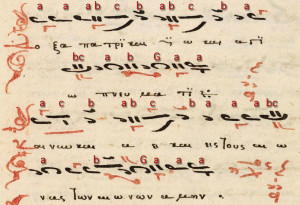 a a abc b abc c a a
bc bc
ο ξα πα τρι και ϋ ω και α γι
bc a b G a a
ω πνευ μα τι
a c b ab c c a a bc
bc
αι νυν και α ει και εις τους αι ω
a b G a a
νας των αι ω νων α μην ·